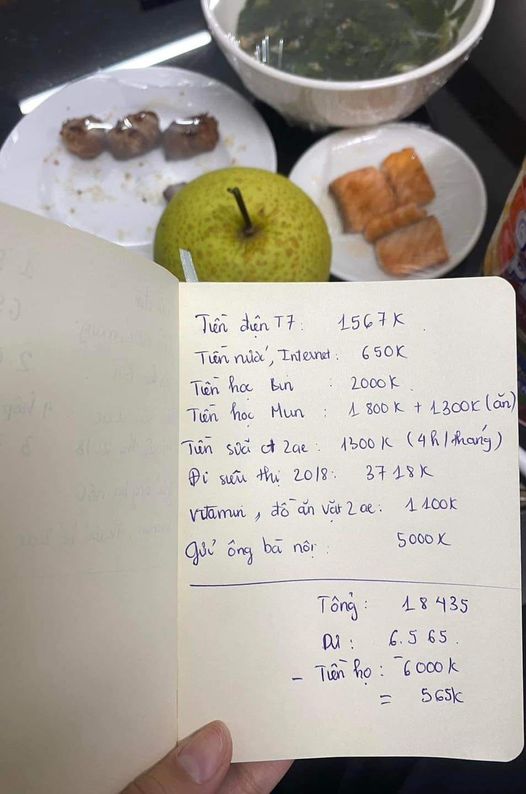 Tiền điện T7: 1567K.
Tiền nước, Internet: 650K
Tiền học Bin : 2000K.
Tiền học Mun : 1 800K + 1300K (ăn)
Tiền sữa 2ae : 1300K (4h/tháng)
Đi siêu thị 20/8: 3718K
vitamin, đồ ăn vặt 2ae: 1 100K
gửi ông bà nội: 5000K
Tổng: 18 435
Dư: 6.565.
- Tiền họ: -6000K
= 565k